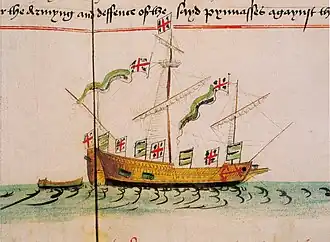 r the Armyng and deffence of the sayd pynnasses against th